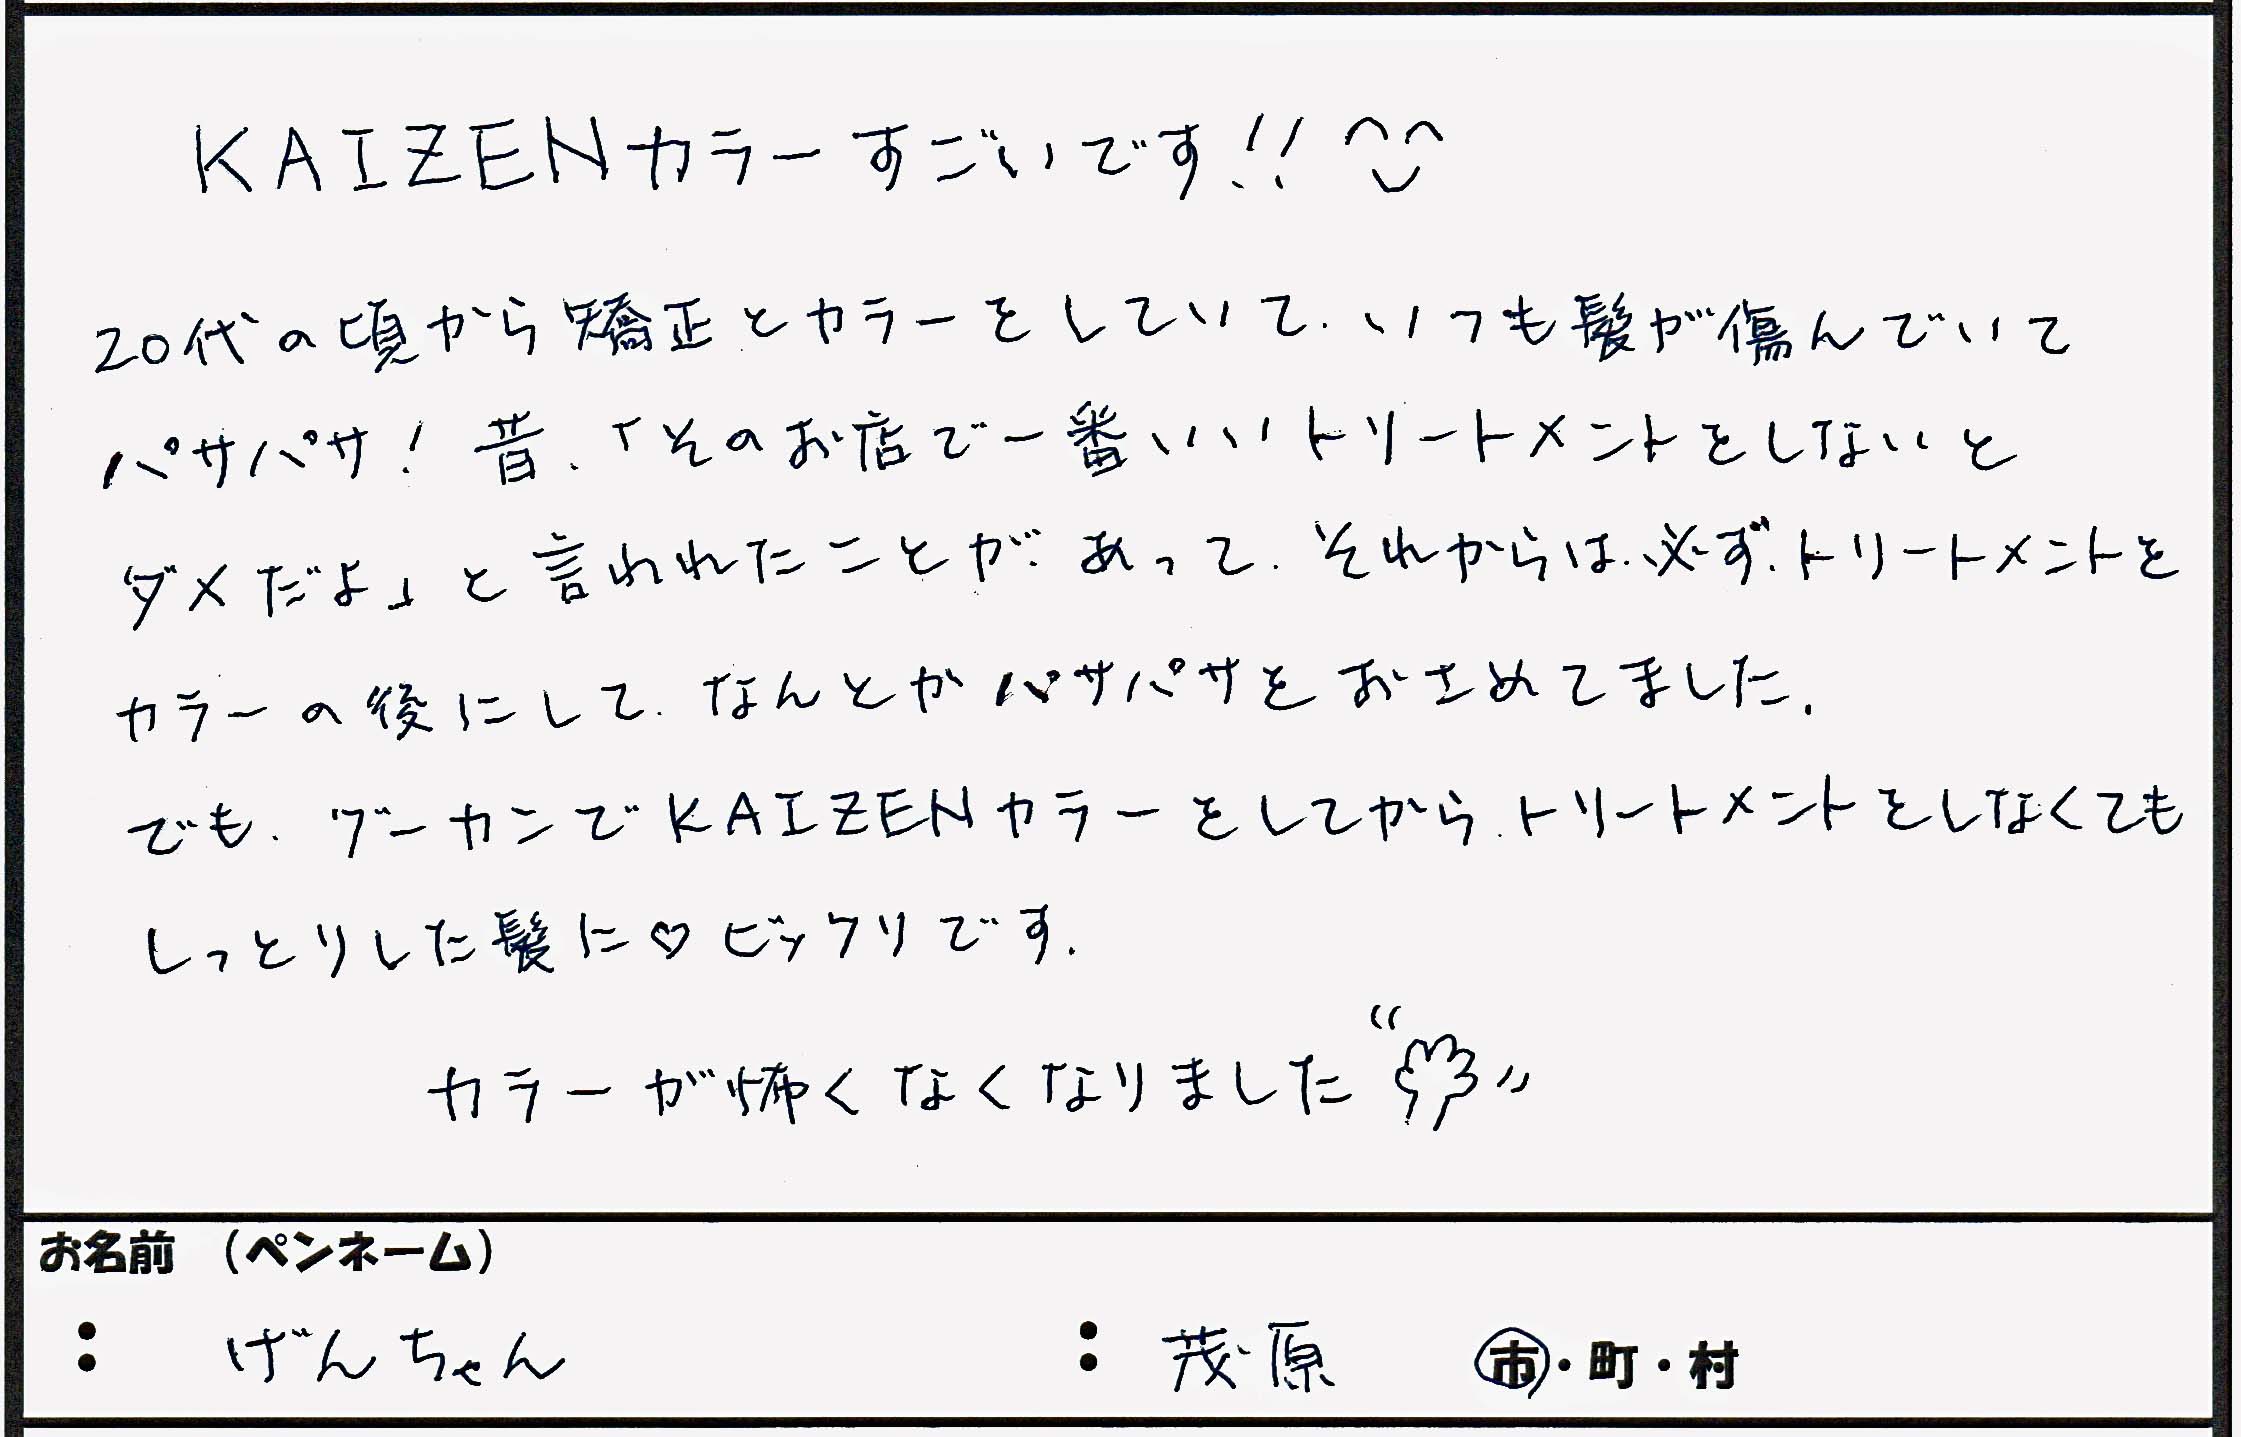 KAIZENカラーすごいです!!
20代の頃から矯正とカラーをしていて、いつも髪が傷んでいて
パサパサ! 昔、「そのお店で一番いいトリートメントをしないと
ダメだよ」と言われたことが、あって、それからは、必ず、トリートメントを
カラーの後にして、なんとかパサパサをおさめてました。
でも、ブーカンでKAIZENカラーをしてから、トリートメントをしなくても
しっとりした髪に♡ビックリです。
カラーが怖くなくなりました
お名前 (ペンネーム)
: げんちゃん : 茂原 市・町・村